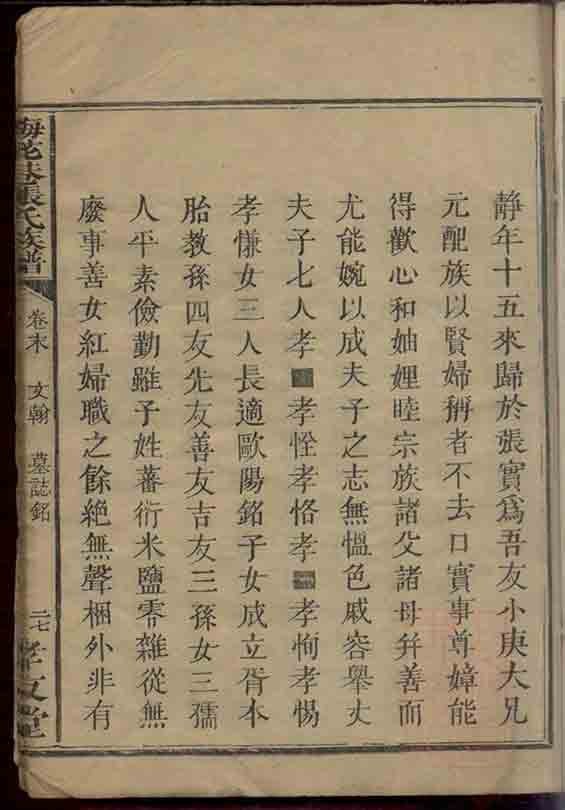 靜年十五來歸於張實為吾友小庚大兄
元配族以賢婦稱者不去口實事尊嫜能
得歡心和妯娌睦宗族諸父諸母幷善而
尤能婉以成夫子之志無慍色戚容舉丈
夫子七人孝 孝恮孝恪孝 孝恂孝惕
孝慊女三人長適歐陽銘子女成立胥本
胎教孫四友先友善友吉友三孫女三孺
人平素儉勤雖子姓蕃衍米鹽零雜從無
廢事善女紅婦職之餘絕無聲梱外非有
梅花巷張氏族譜
卷末 文翰 墓誌銘
二七
孝友堂